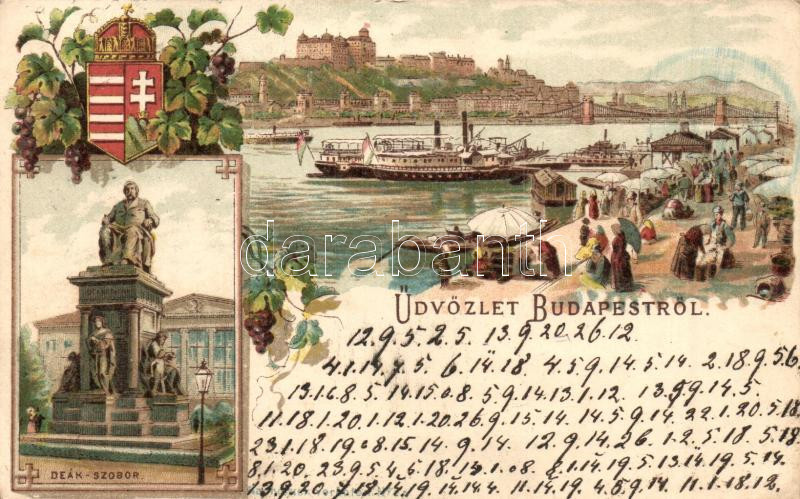 darabanth.com
ÜDVÖZLET BUDAPESTRŐL.
DEÁK-SZOBOR.
12.9.5.2.5. 13.9.20.26.12.
4.1.14. 5. 6.14.18. 4.5.9.14.5.14. 2.18.9.5.6.
13.1.6.8.5. 14.15. 8. 5.9.14.13.1.12. 13.5.9.14.5
11.18.1.20.1.12.1.20.26.9.15.14. 14.5.9.14. 22.1.20.5.18.
23.1.18. 19. 8.15. 14.9.14. 12.9.14.26. 1.2.5.18. 5.18.
8.1.20. 23.9.5. 4.6.18. 13.1. 8. 8.1.14.19.5.13.14.19.5.14.
13.9.20. 11.14.19. 4.5.9.14. 11.1.18.12.